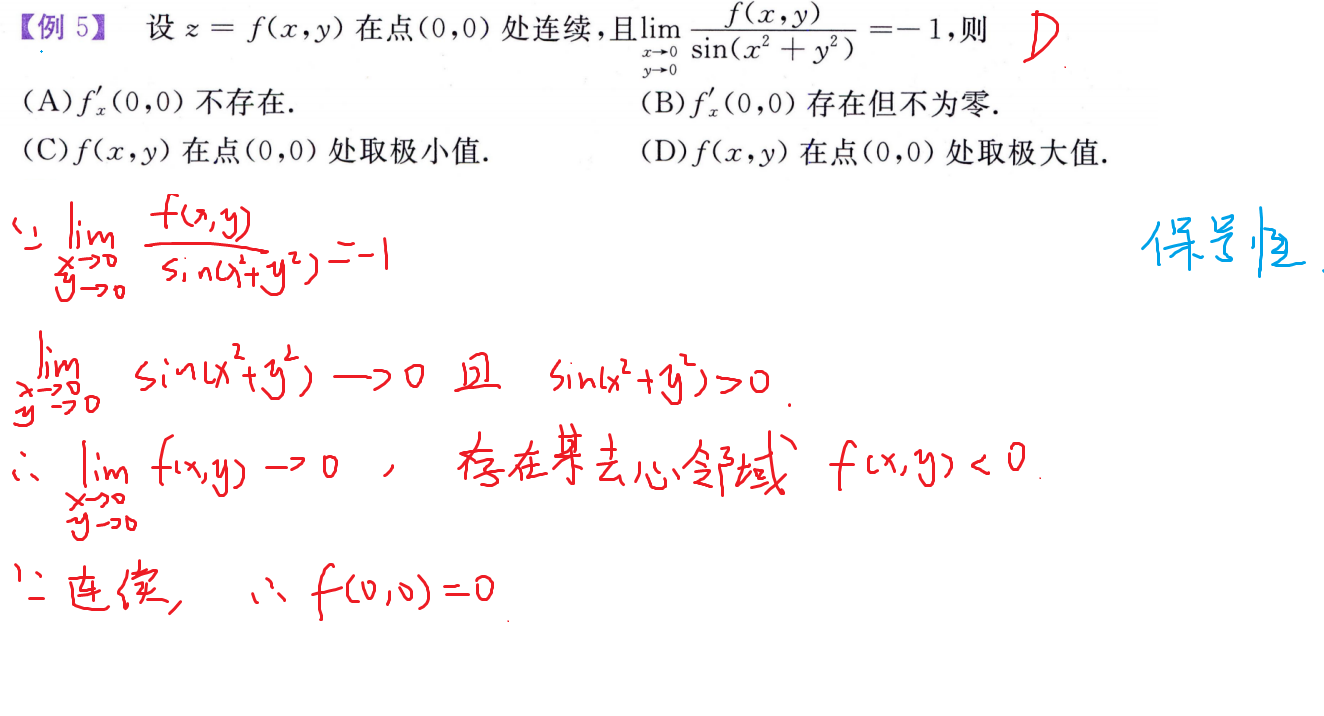 【例 5】 设 z = f(x,y) 在点(0,0) 处连续,且 lim_{x→0, y→0} f(x,y)/sin(x² + y²) = −1,则 D
(A) f′ₓ(0,0) 不存在. (B) f′ₓ(0,0) 存在但不为零.
(C) f(x,y) 在点(0,0) 处取极小值. (D) f(x,y) 在点(0,0) 处取极大值.
∵ lim_{x→0, y→0} f(x,y)/sin(x²+y²) = −1 保号性.
lim_{x→0, y→0} sin(x²+y²) → 0 且 sin(x²+y²) > 0.
∴ lim_{x→0, y→0} f(x,y) → 0 , 存在某去心邻域 f(x,y) < 0.
∵ 连续, ∴ f(0,0) = 0.